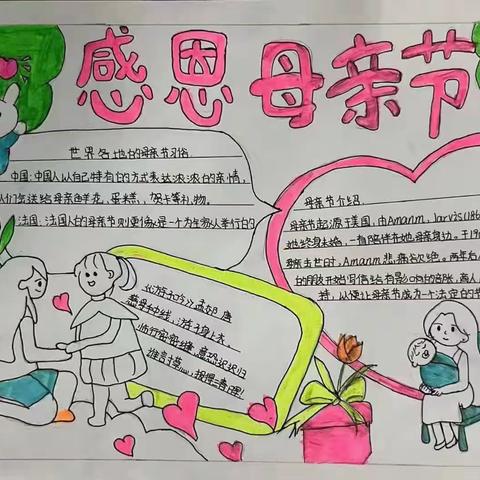 感恩母亲节
世界各地的母亲节习俗
中国:中国人以自己特有的方式表达浓浓的亲情,
们会送给母亲鲜花,蛋糕,贺卡等礼物。
法国:法国人的母亲节则更像是一个为
人举行的
母亲节介绍
母亲节起源于美国,由Amanm,Jarvis(186
她终身未嫁,一直陪伴在她母亲身边。于19
母亲去世时,Amanm悲痛欲绝。两年后
开始写信给有影响的
持,以便让母亲节成为一个法定的节
游子吟 孟郊 唐
慈母手中线,游子身上衣。
临行密密缝,意恐迟迟归
谁言寸草心,报得三春晖!